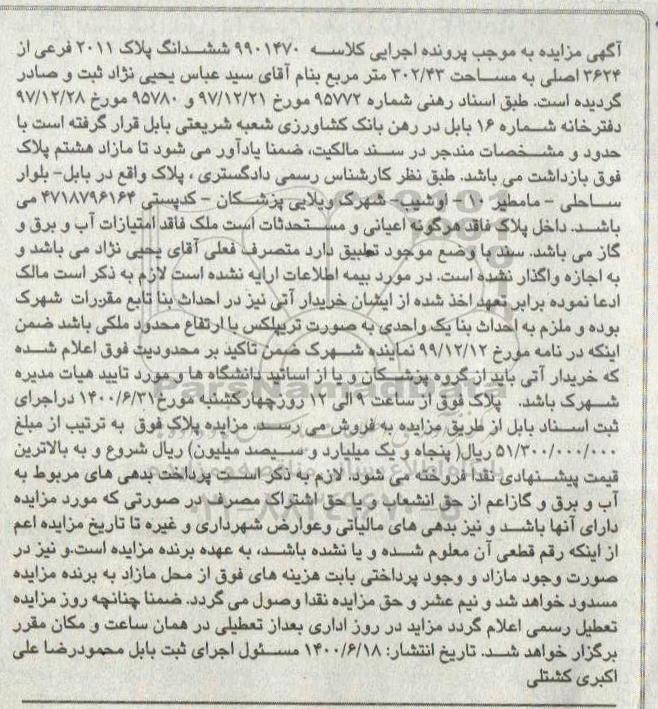 آگهی مزایده به موجب پرونده اجرایی کلاسه ۹۹۰۱۴۷۰ ششدانگ پلاک ۲۰۱۱ فرعی از
۳۶۲۴ اصلی به مساحت ۳۰۲/۴۳ متر مربع بنام آقای سید عباس یحیی نژاد ثبت و صادر
گردیده است. طبق اسناد رهنی شماره ۹۵۷۷۲ مورخ ۹۷/۱۲/۲۱ و ۹۵۷۸۰ مورخ ۹۷/۱۲/۲۸
دفترخانه شماره ۱۶ بابل در رهن بانک کشاورزی شعبه شریعتی بابل قرار گرفته است با
حدود و مشخصات مندجر در سند مالکیت، ضمنا یادآور می شود تا مازاد هشتم پلاک
فوق بازداشت می باشد. طبق نظر کارشناس رسمی دادگستری ، پلاک واقع در بابل- بلوار
ساحلی - مامطیر ۱۰ - اوشیب- شهرک ویلایی پزشکان - کدپستی ۴۷۱۸۷۹۶۱۶۴ می
باشد. داخل پلاک فاقد هرگونه اعیانی و مستحدثات است ملک فاقد امتیازات آب و برق و
گاز می باشد. سند با وضع موجود تطبیق دارد متصرف فعلی آقای یحیی نژاد می باشد و
به اجازه واگذار نشده است. در مورد بیمه اطلاعات ارایه نشده است لازم به ذکر است مالک
ادعا نموده برابر تعهد اخذ شده از ایشان خریدار آتی نیز در احداث بنا تابع مقررات شهرک
بوده و ملزم به احداث بنا یک واحدی به صورت تریپلکس با ارتفاع محدود ملکی باشد ضمن
اینکه در نامه مورخ ۹۹/۱۲/۱۲ نماینده شهرک ضمن تاکید بر محدودیت فوق اعلام شده
که خریدار آتی باید از گروه پزشکان و یا از اساتید دانشگاه ها و مورد تایید هیات مدیره
شهرک باشد. پلاک فوق از ساعت ۹ الی ۱۲ روزچهارکشنبه مورخ ۱۴۰۰/۶/۳۱ دراجرای
ثبت اسناد بابل از طریق مزایده به فروش می رسد. مزایده پلاک فوق به ترتیب از مبلغ
۵۱/۳۰۰/۰۰۰/۰۰۰ ریال( پنجاه و یک میلیارد و سیصد میلیون) ریال شروع و به بالاترین
قیمت پیشنهادی نقدا فروخته می شود. لازم به ذکر است پرداخت بدهی های مربوط به
آب و برق و گازاعم از حق انشعاب و یا حق اشتراک مصرف در صورتی که مورد مزایده
دارای آنها باشد و نیز بدهی های مالیاتی وعوارض شهرداری و غیره تا تاریخ مزایده اعم
از اینکه رقم قطعی آن معلوم شده و یا نشده باشد، به عهده برنده مزایده است.و نیز در
صورت وجود مازاد و وجود پرداختی بابت هزینه های فوق از محل مازاد به برنده مزایده
مسدود خواهد شد و نیم عشر و حق مزایده نقدا وصول می گردد. ضمنا چنانچه روز مزایده
تعطیل رسمی اعلام گردد مزاید در روز اداری بعداز تعطیلی در همان ساعت و مکان مقرر
برگزار خواهد شد. تاریخ انتشار: ۱۴۰۰/۶/۱۸ مسئول اجرای ثبت بابل محمودرضا علی
اکبری کشتلی